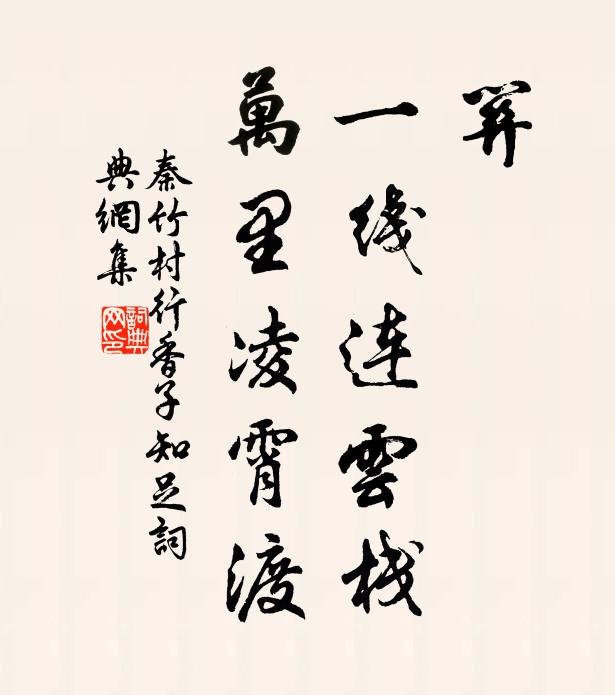 一线連雲栈
萬里凌霄渡
秦竹村行香子知足詞
典網集
詞典
网印